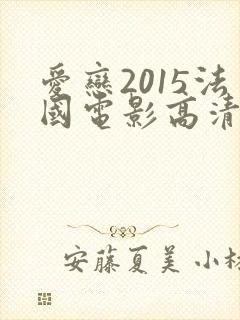 愛戀2015法
國電影高清
安藤夏美 小林